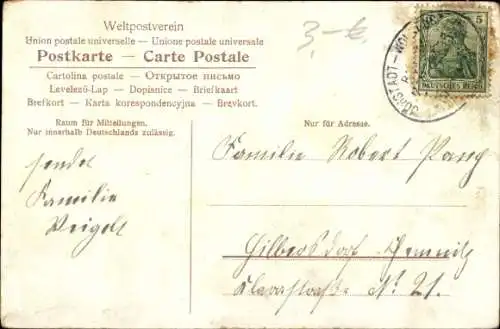 Weltpostverein
Union postale universelle — Unione postale universale
Postkarte — Carte Postale
Cartolina postale — Открытое письмо
Levelező-Lap — Dopisnice — Briefkaart
Brefkort — Karta korespondencyjna — Brevkort.
Raum für Mitteilungen.
Nur innerhalb Deutschlands zulässig.
sendet
Familie
Weigelt
3,- €
5
DEUTSCHES REICH
Nur für Adresse.
Familie Robert
Hilbersdorf-Chemnitz
No 21.